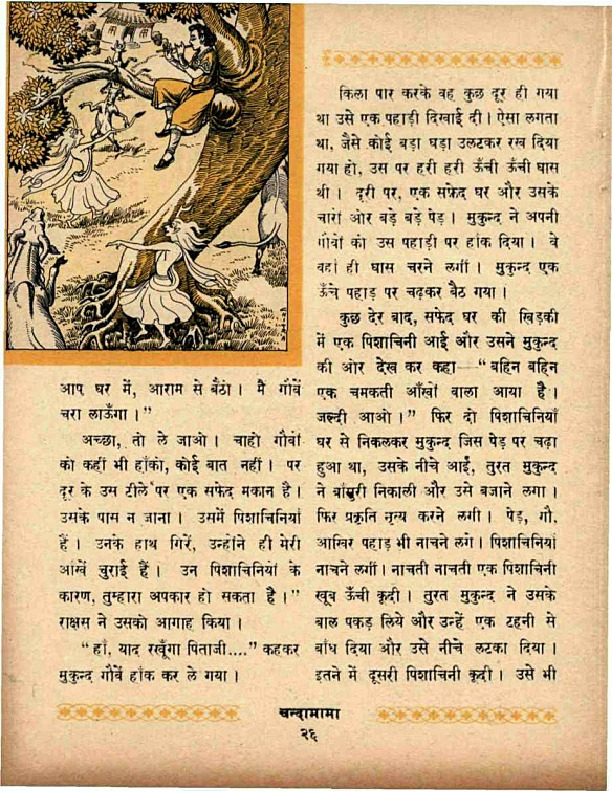 आप घर में, आराम से बैठो। मैं गौवें
चरा लाऊँगा।"
अच्छा, तो ले जाओ। चाहो गौवों
को कहीं भी हाँको, कोई बात नहीं। पर
दूर के उस टीले पर एक सफेद मकान है।
उसके पास न जाना। उसमें पिशाचिनियाँ
हैं। उनके हाथ गिरें, उन्होंने ही मेरी
आंखें चुराई हैं। उन पिशाचिनियों के
कारण, तुम्हारा अपकार हो सकता है।"
राक्षस ने उसको आगाह किया।
"हाँ, याद रखूँगा पिताजी...." कहकर
मुकुन्द गौवें हाँक कर ले गया।
किला पार करके वह कुछ दूर ही गया
था उसे एक पहाड़ी दिखाई दी। ऐसा लगता
था, जैसे कोई बड़ा घड़ा उलटकर रख दिया
गया हो, उस पर हरी हरी ऊँची ऊँची घास
थी। दूरी पर, एक सफ़ेद घर और उसके
चारों ओर बड़े बड़े पेड़। मुकुन्द ने अपनी
गौवों को उस पहाड़ी पर हांक दिया। वे
वहां ही घास चरने लगीं। मुकुन्द एक
ऊँचे पहाड़ पर चढ़कर बैठ गया।
कुछ देर बाद, सफेद घर की खिड़की
में एक पिशाचिनी आई और उसने मुकुन्द
की ओर देख कर कहा—"बहिन बहिन
एक चमकती आँखों वाला आया है।
जल्दी आओ।" फिर दो पिशाचिनियाँ
घर से निकलकर मुकुन्द जिस पेड़ पर चढ़ा
हुआ था, उसके नीचे आईं, तुरत मुकुन्द
ने बाँसुरी निकाली और उसे बजाने लगा।
फिर प्रकृति नृत्य करने लगी। पेड़, गौ,
आखिर पहाड़ भी नाचने लगे। पिशाचिनियाँ
नाचने लगीं। नाचती नाचती एक पिशाचिनी
खूब ऊँची कूदी। तुरत मुकुन्द ने उसके
बाल पकड़ लिये और उन्हें एक टहनी से
बाँध दिया और उसे नीचे लटका दिया।
इतने में दूसरी पिशाचिनी कूदी। उसे भी
चन्दामामा
२६